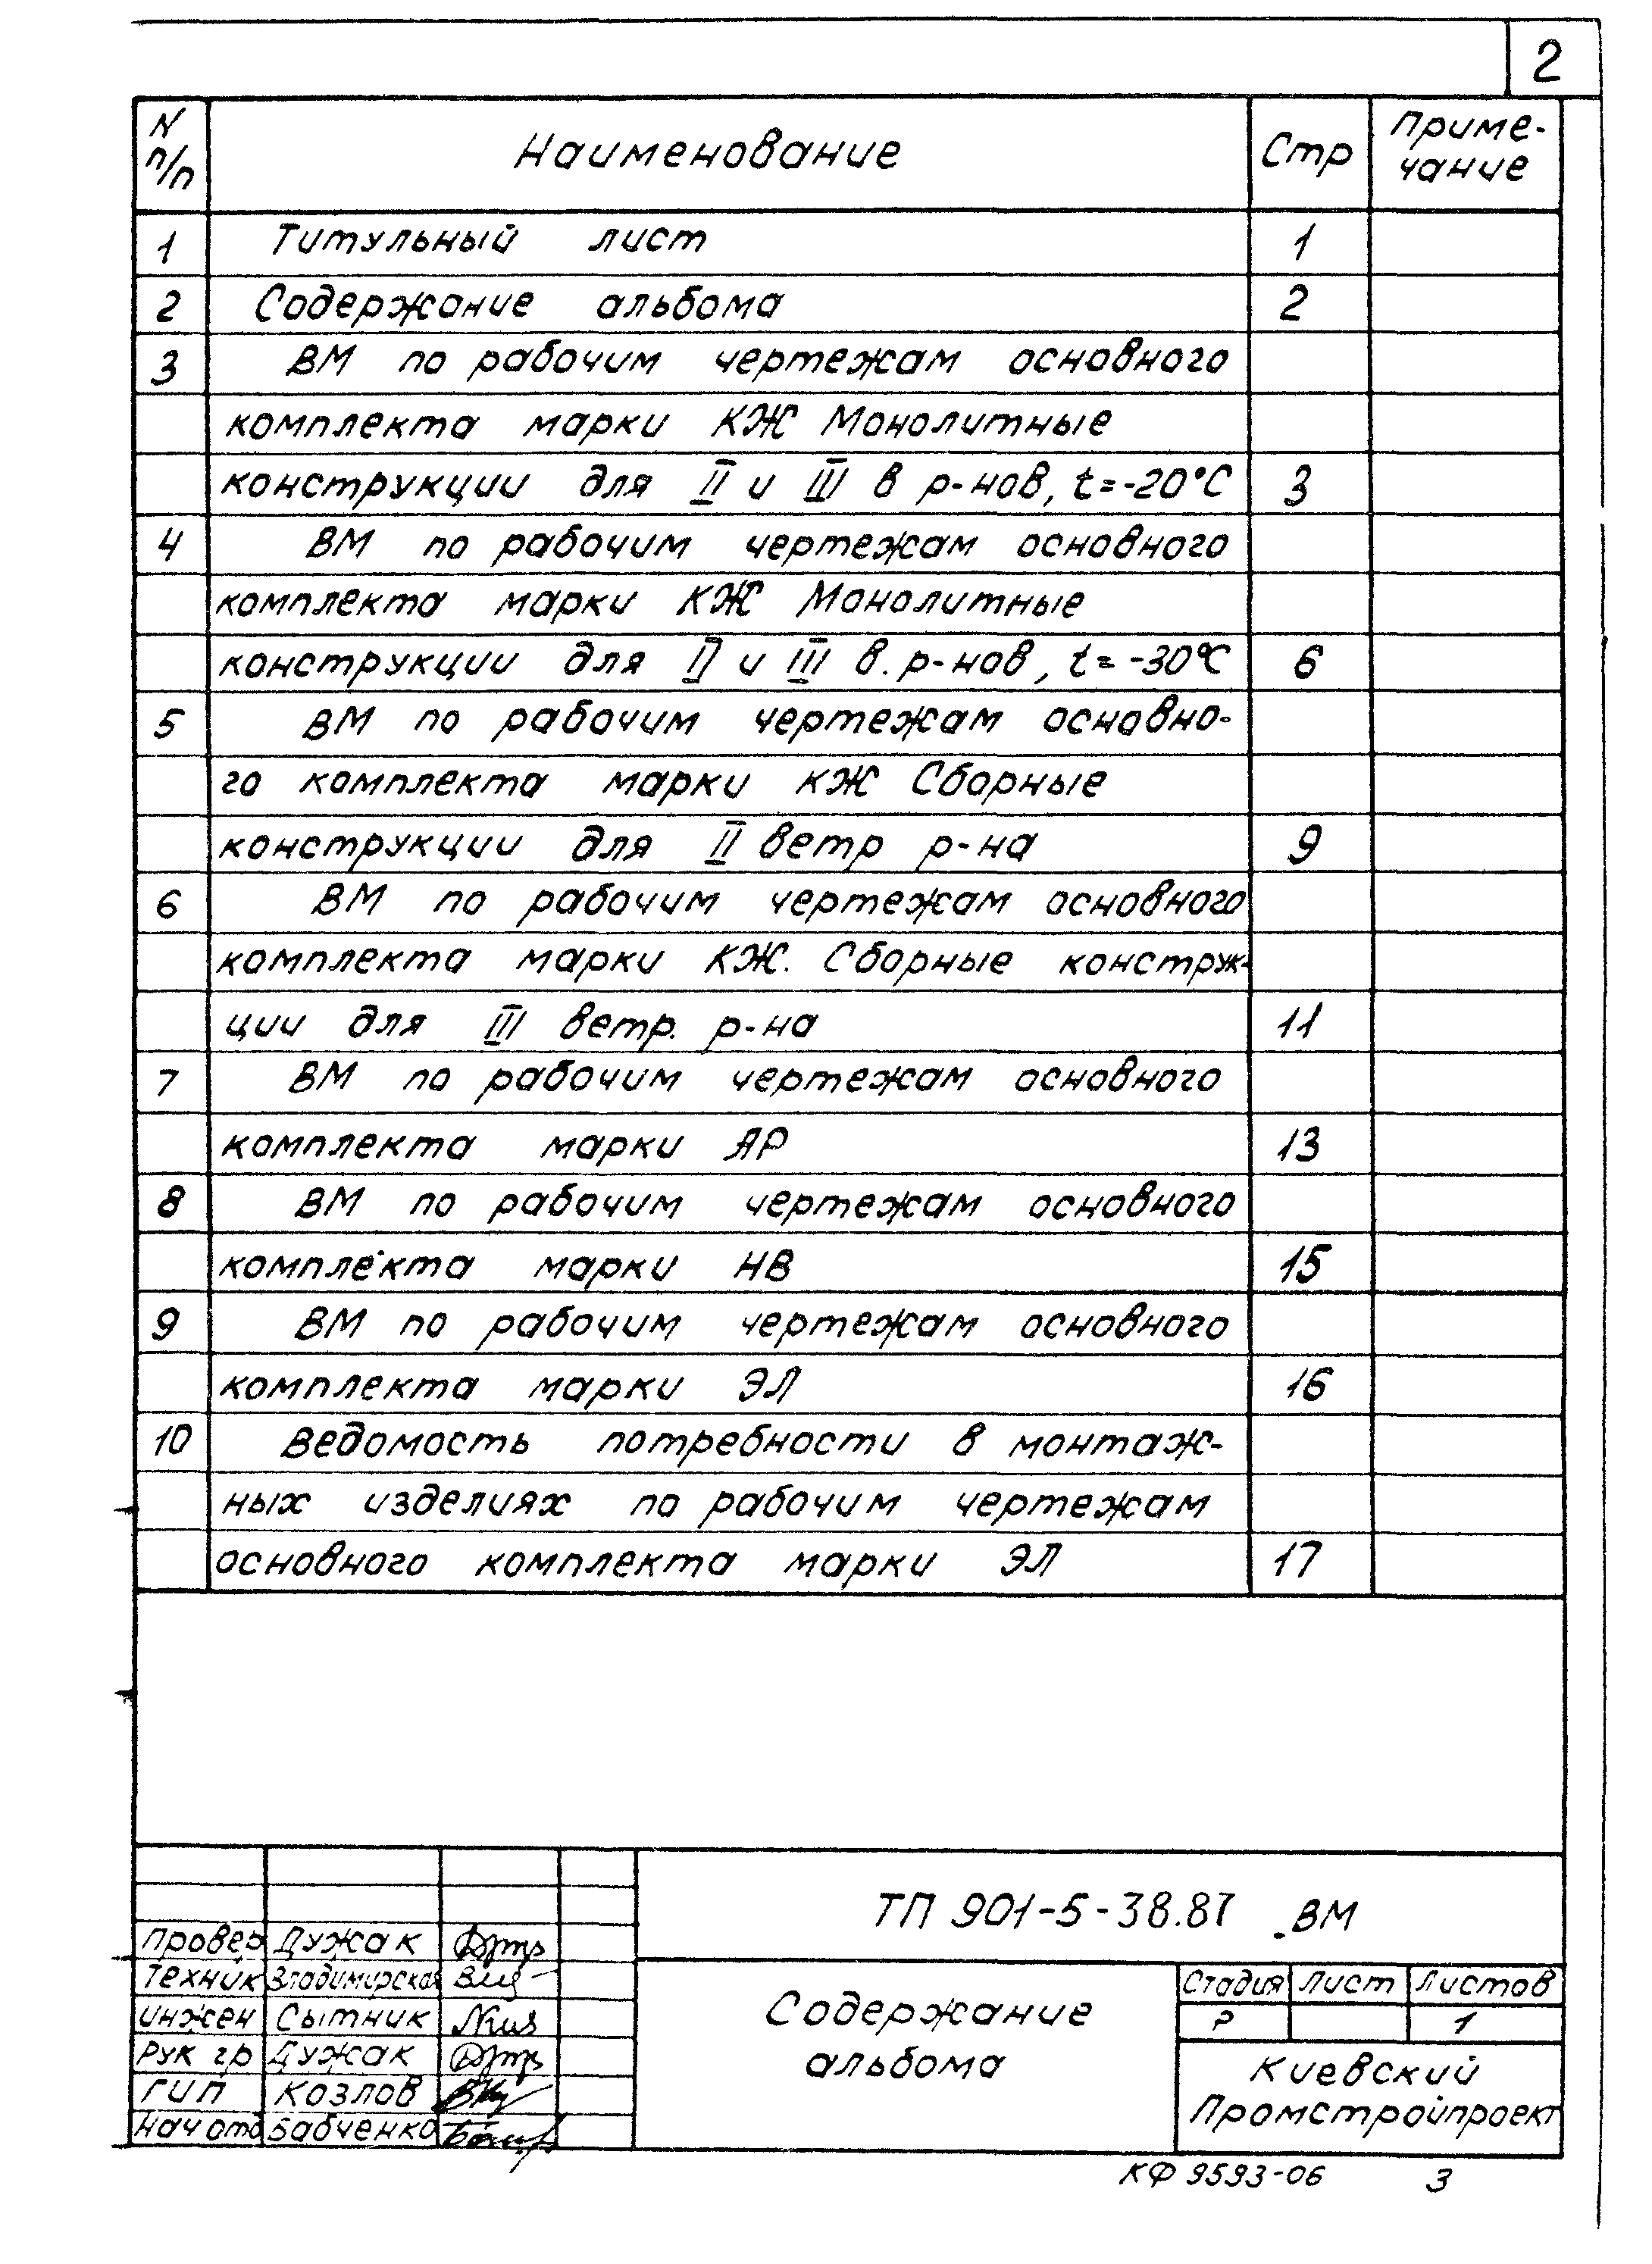 2
N п/п Наименование Стр Приме-
чание
1 Титульный лист 1
2 Содержание альбома 2
3 ВМ по рабочим чертежам основного
комплекта марки КЖ Монолитные
конструкции для II и III в р-нов, t=-20°С 3
4 ВМ по рабочим чертежам основного
комплекта марки КЖ Монолитные
конструкции для II и III в. р-нов, t=-30°С 6
5 ВМ по рабочим чертежам основно-
го комплекта марки КЖ Сборные
конструкции для II ветр р-на 9
6 ВМ по рабочим чертежам основного
комплекта марки КЖ. Сборные конструк-
ции для III ветр. р-на 11
7 ВМ по рабочим чертежам основного
комплекта марки АР 13
8 ВМ по рабочим чертежам основного
комплекта марки НВ 15
9 ВМ по рабочим чертежам основного
комплекта марки ЭЛ 16
10 Ведомость потребности в монтаж-
ных изделиях по рабочим чертежам
основного комплекта марки ЭЛ 17
ТП 901-5-38.87 ВМ
Провер Дужак
Техник Владимирская
Инжен Сытник
Рук гр Дужак
ГИП Козлов
Нач отд Бабченко
Содержание
альбома
Стадия Лист Листов
Р 1
Киевский
Промстройпроект
КФ 9593-06 3